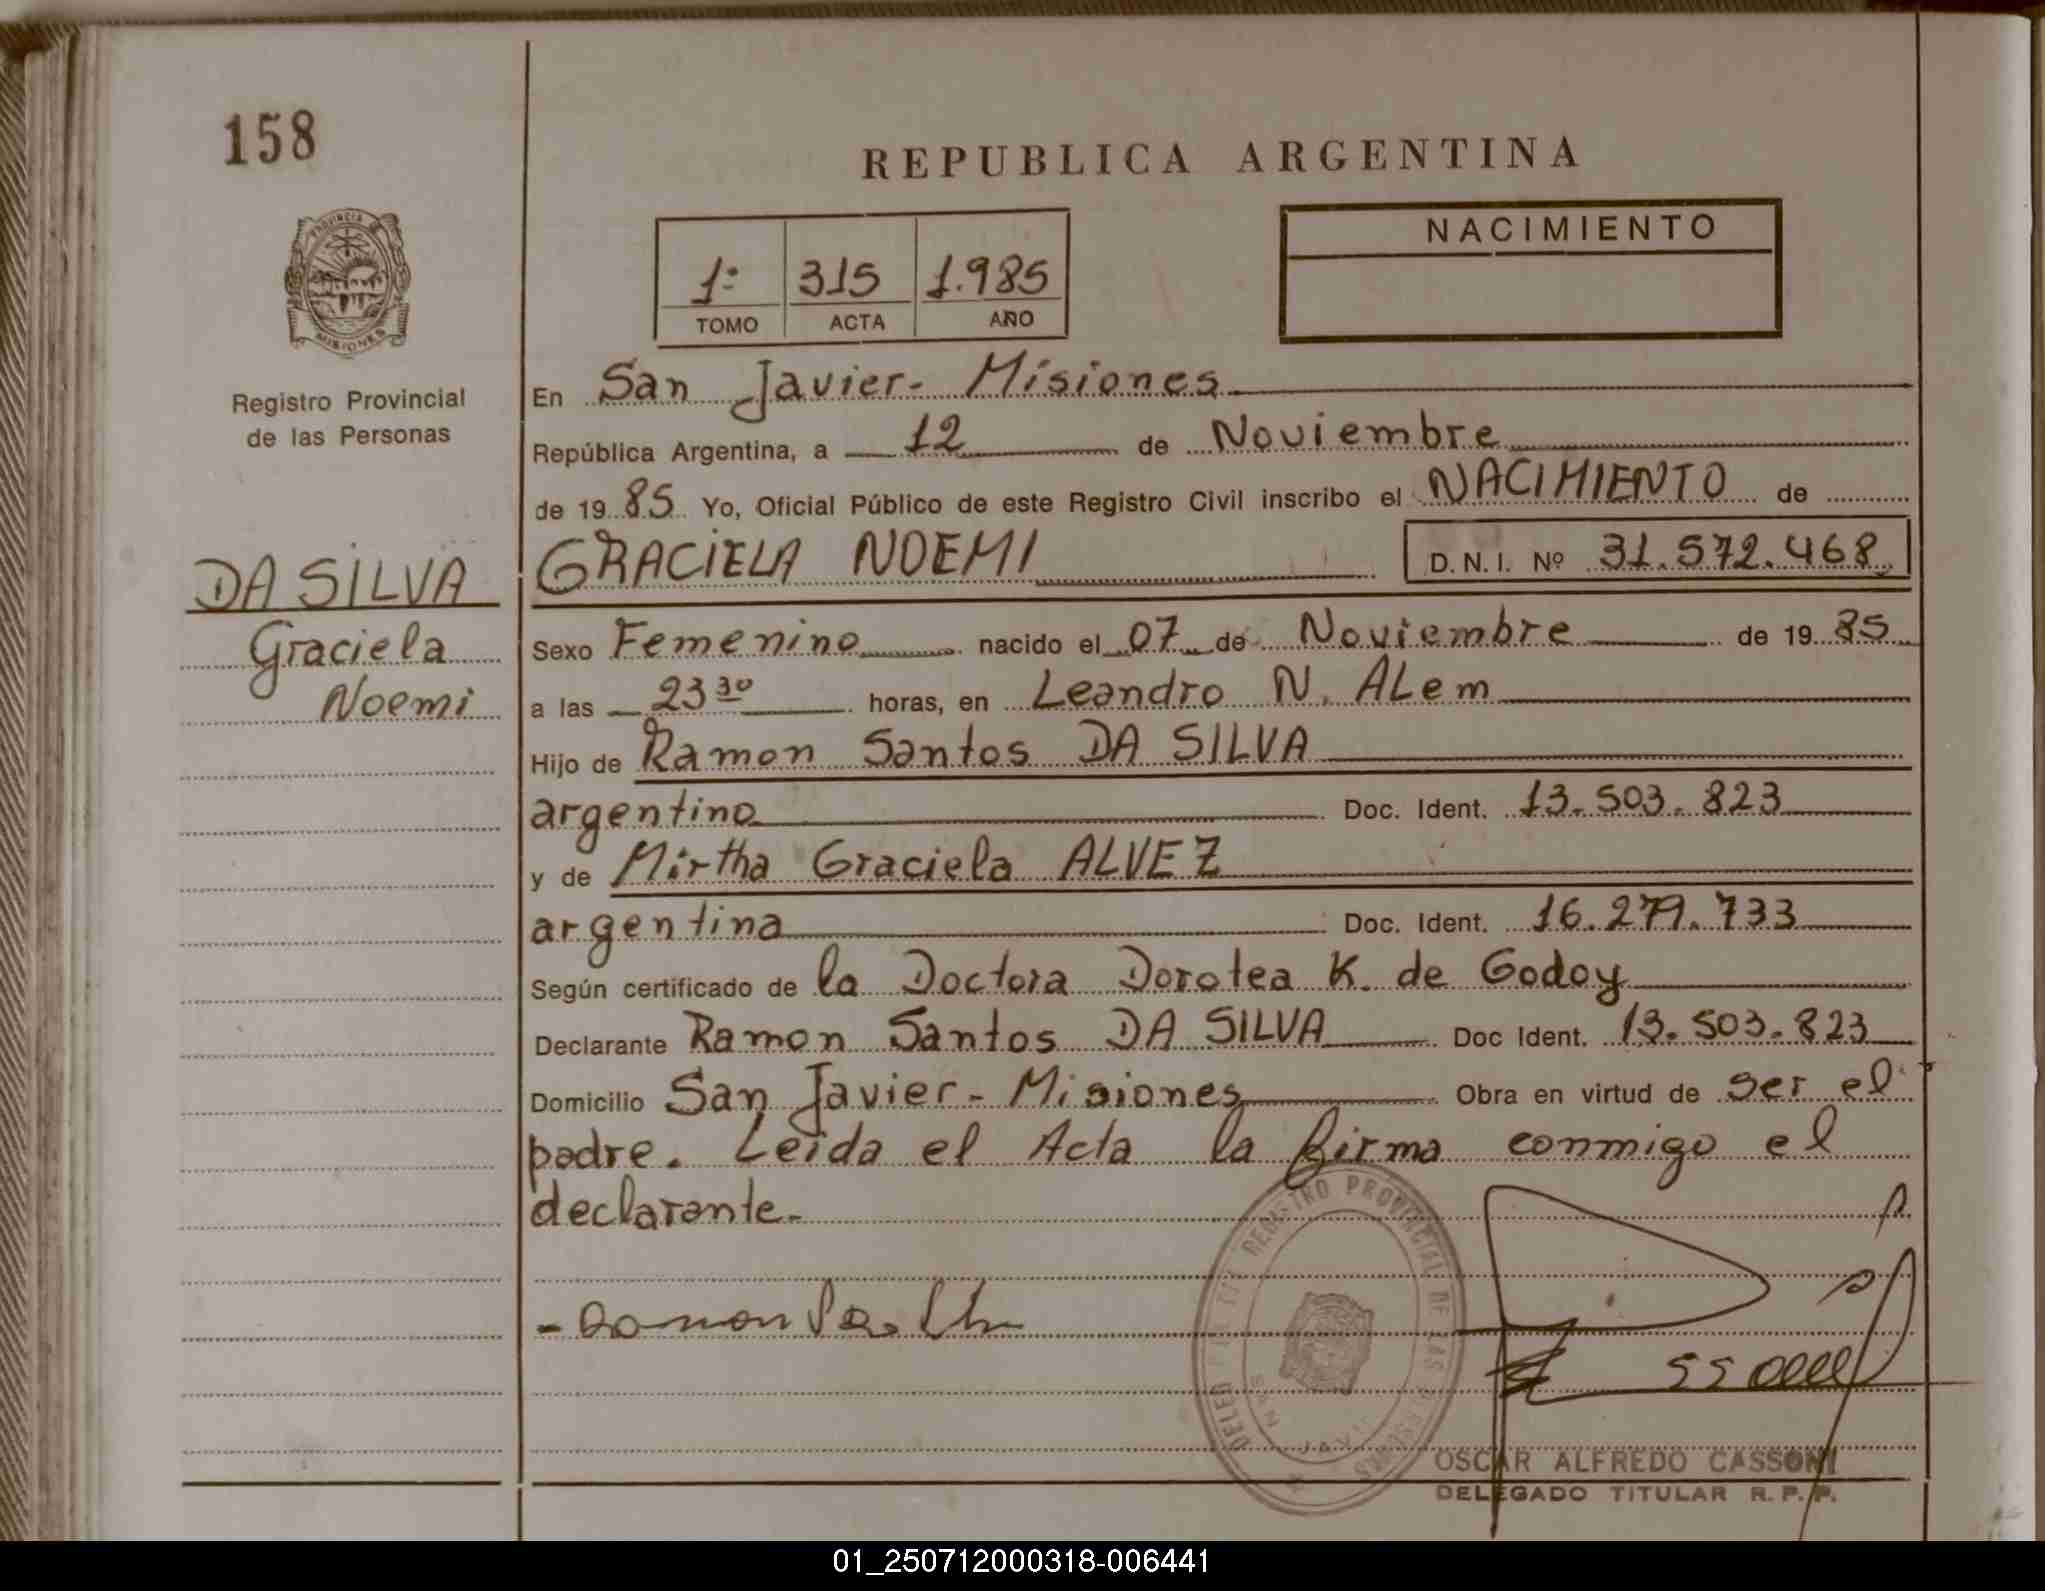 158
REPUBLICA ARGENTINA
NACIMIENTO
1º 315 1.985
TOMO ACTA AÑO
PROVINCIA DE MISIONES
Registro Provincial
de las Personas
En San Javier- Misiones
República Argentina, a 12 de Noviembre
de 1985 Yo, Oficial Público de este Registro Civil inscribo el NACIMIENTO de
GRACIELA NOEMI D.N.I. Nº 31.572.468
DA SILVA
Graciela
Noemi
Sexo Femenino nacido el 07 de Noviembre de 1985
a las 23 30 horas, en Leandro N. ALem
Hijo de Ramon Santos DA SILVA
argentino Doc. Ident. 13.503.823
y de Mirtha Graciela ALVEZ
argentina Doc. Ident. 16.279.733
Según certificado de la Doctora Dorotea K. de Godoy
Declarante Ramon Santos DA SILVA Doc Ident. 13.503.823
Domicilio San Javier- Misiones Obra en virtud de ser el
padre. Leida el Acta la firma conmigo el
declarante-
REGISTRO PROVINCIAL DE LAS PERSONAS
SAN JAVI
OSCAR ALFREDO CASSONI
DELEGADO TITULAR R.P.P.
01_250712000318-006441